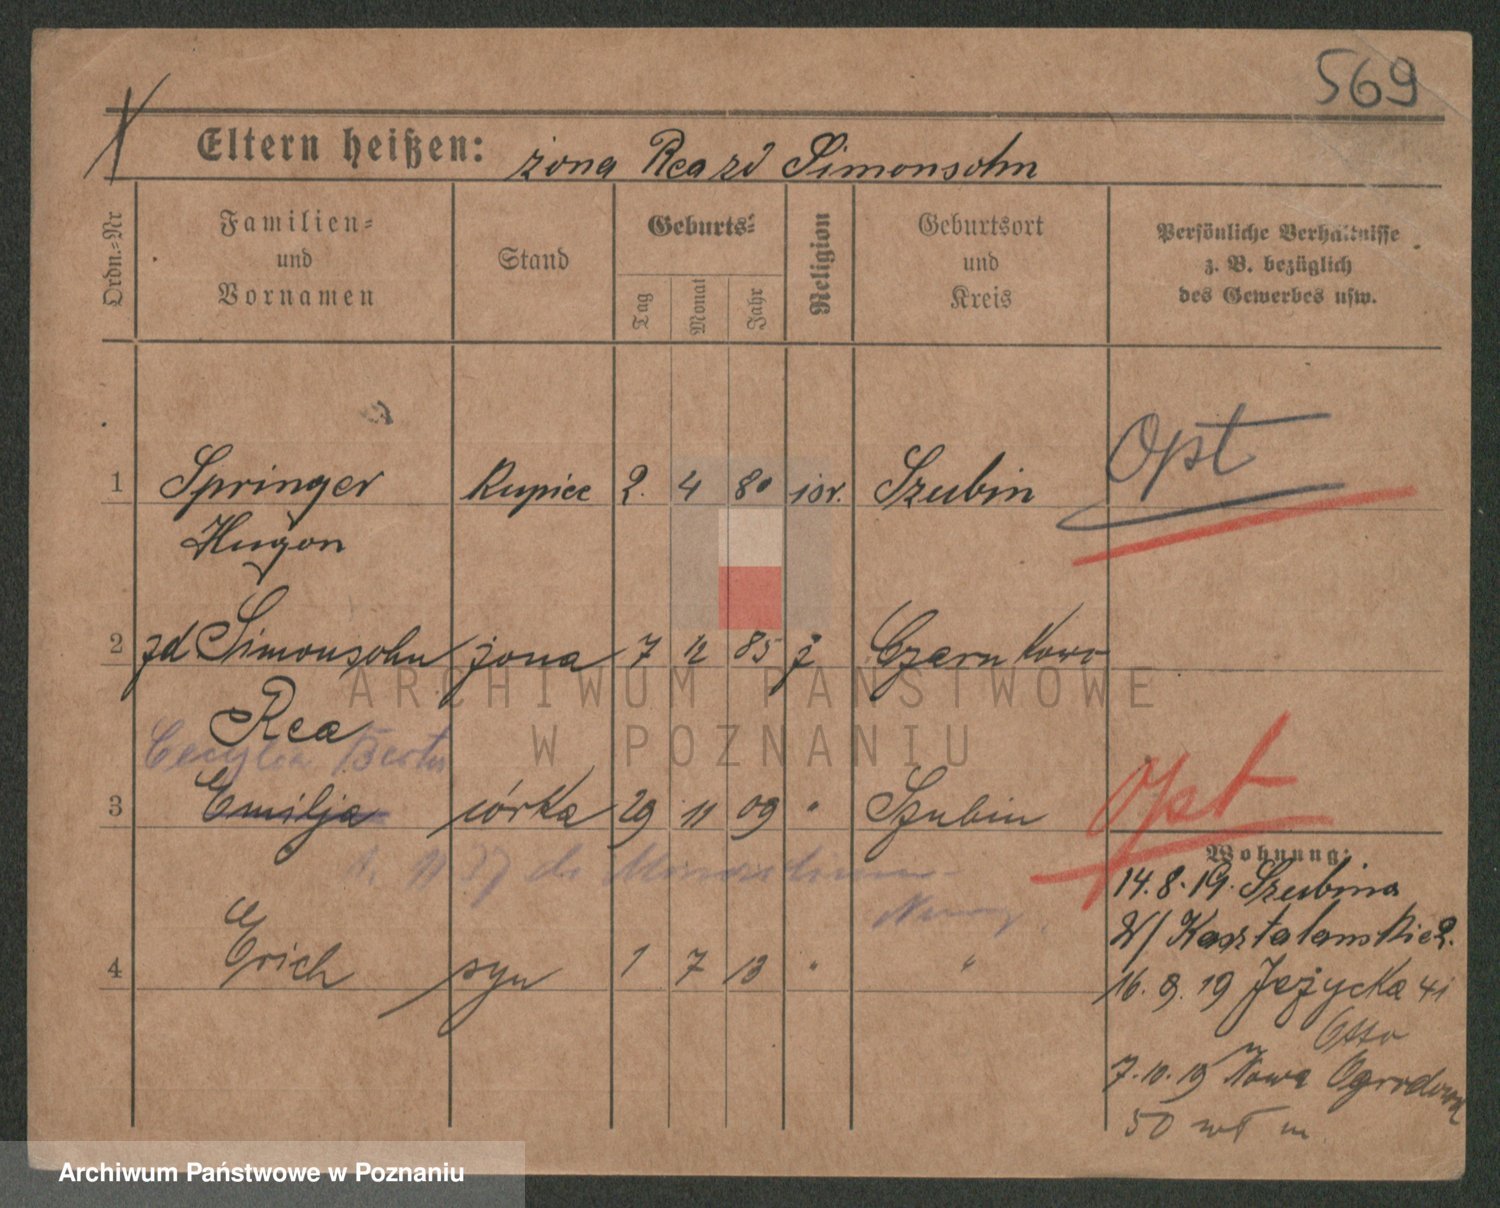 569
Eltern heißen: żona Rea zd Simonsohn
Ordn.=Nr
Familien=
und
Vornamen
Stand
Geburts=:
Tag
Monat
Jahr
Religion
Geburtsort
und
Kreis
Persönliche Verhältnisse
z. B. bezüglich
des Gewerbes usw.
Opt
1 Springer Kupiec 2. 4 80 izr. Szubin
Hugon
2 zd Simonsohn żona 7 12 85 ż Czarnkowo
Rea
Cecylia Berta
Opt
3 Emilja córka 29 11 09 " Szubin
Wohnung:
14.8.19. Szubina
W/ Kasztelanska 2.
4 Erich syn 1 7 13 " "
16.9.19 Jeżycka 41
Otto
7.10.19 Nowa Ogrodowa
50 wł m
ARCHIWUM PAŃSTWOWE
W POZNANIU
Archiwum Państwowe w Poznaniu